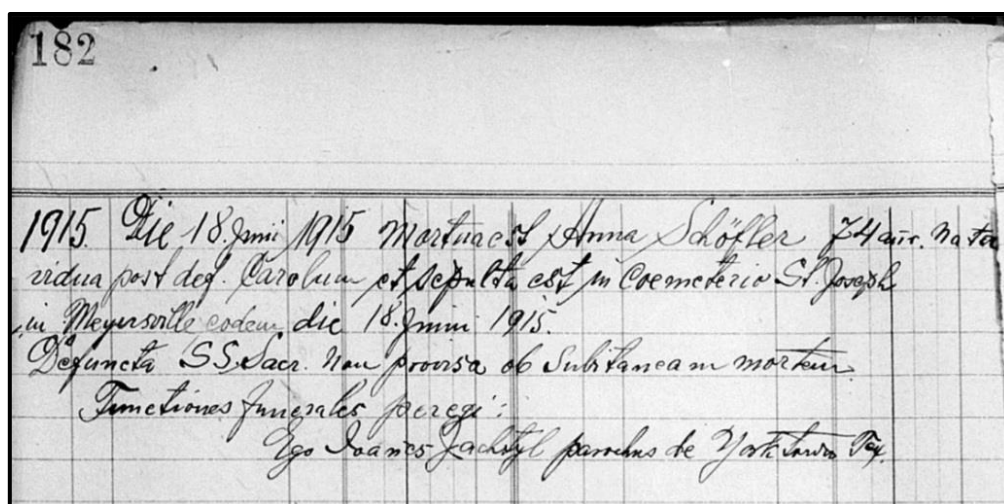 182
1915. Die 18. Junii 1915 Mortua est Anna Schöfler 74 ann. nata
vidua post def. Carolum et sepulta est in Coemeterio St. Joseph
in Meyersville eodem die 18. Junii 1915.
Defuncta SS. Sacr. non provisa ob subitaneam mortem.
Functiones funerales peregi:
Ego Joanes parochus de Yorktown Tex.